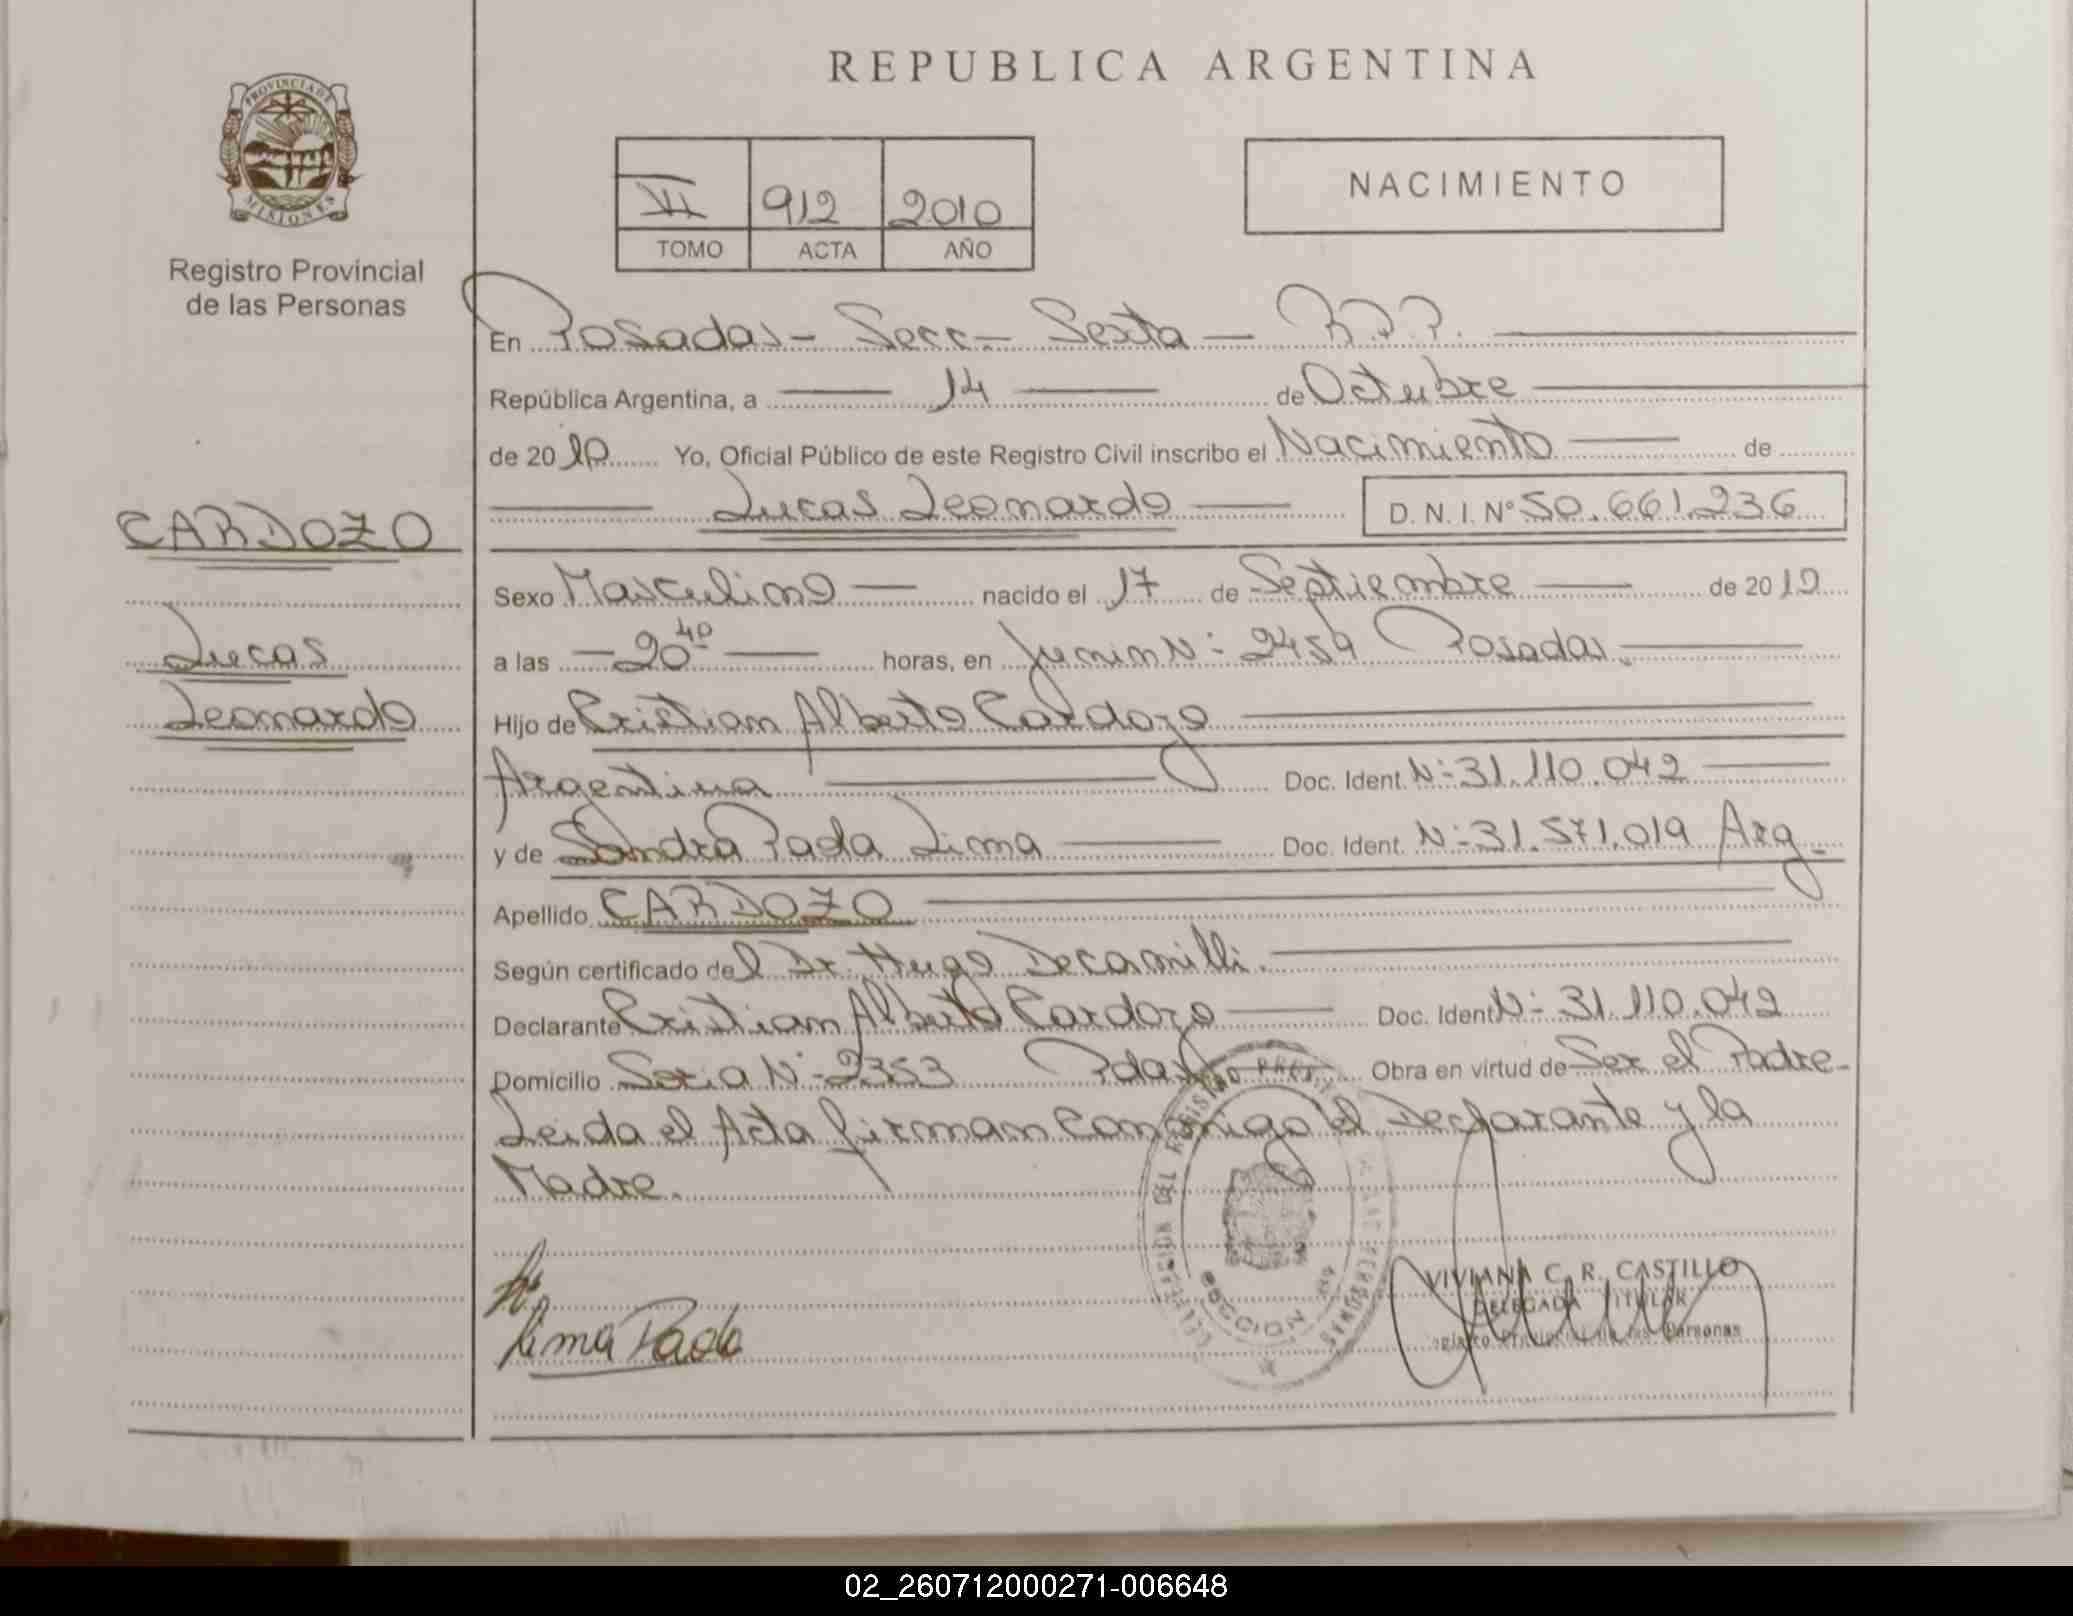 REPUBLICA ARGENTINA
PROVINCIA DE MISIONES
Registro Provincial
de las Personas
VI 912 2010
TOMO ACTA AÑO
NACIMIENTO
En Posadas - Secc - Sexta - R.P.P.
República Argentina, a 14 de Octubre
de 2010 Yo, Oficial Público de este Registro Civil inscribo el Nacimiento de
Lucas Leonardo D.N.I. Nº 50.661.236
CARDOZO
Lucas
Leonardo
Sexo Masculino nacido el 17 de Septiembre de 2010
a las 20 40 horas, en Junin Nº 2459 Posadas.
Hijo de Cristian Alberto Cardozo
Argentina Doc. Ident. Nº 31.110.042
y de Sandra Pada Lima Doc. Ident. Nº 31.571.019 Arg.
Apellido CARDOZO
Según certificado del Dr. Hugo Decamilli.
Declarante Cristian Alberto Cardozo Doc. Ident Nº 31.110.042
Domicilio Soria Nº 2353 Pdas Obra en virtud de Ser el Padre
Leida el Acta firman conmigo el Declarante y la
Madre.
Lima Pada
VIVIANA C. R. CASTILLO
DELEGADA TITULAR
Registro Provincial de las Personas
02_260712000271-006648